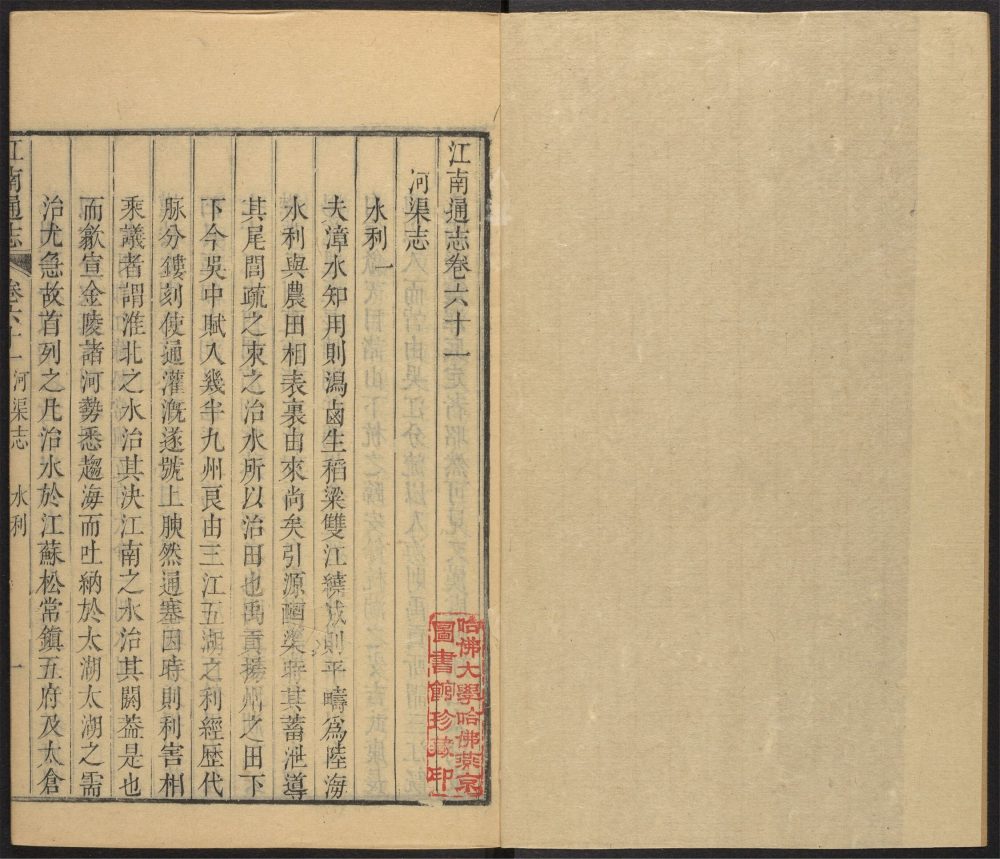 江南通志卷六十一
河渠志
水利一
夫漳水知用則潟鹵生稻粱雙江繞戍則平疇爲陸海
水利與農田相表裏由來尚矣引源釃渠時其蓄泄導
其尾閭疏之東之治水所以治田也禹貢揚州之田下
下今吳中賦入幾半九州良由三江五湖之利經歷代
脉分鏤刻使通灌漑遂號上腴然通塞因時則利害相
乘議者謂淮北之水治其決江南之水治其閼葢是也
而歙宣金陵諸河勢悉趨海而吐納於太湖太湖之需
治尤急故首列之凡治水於江蘇松常鎮五府及太倉
江南通志 卷六十一 河渠志 水利 一
哈佛大學哈佛燕京
圖書館珍藏印